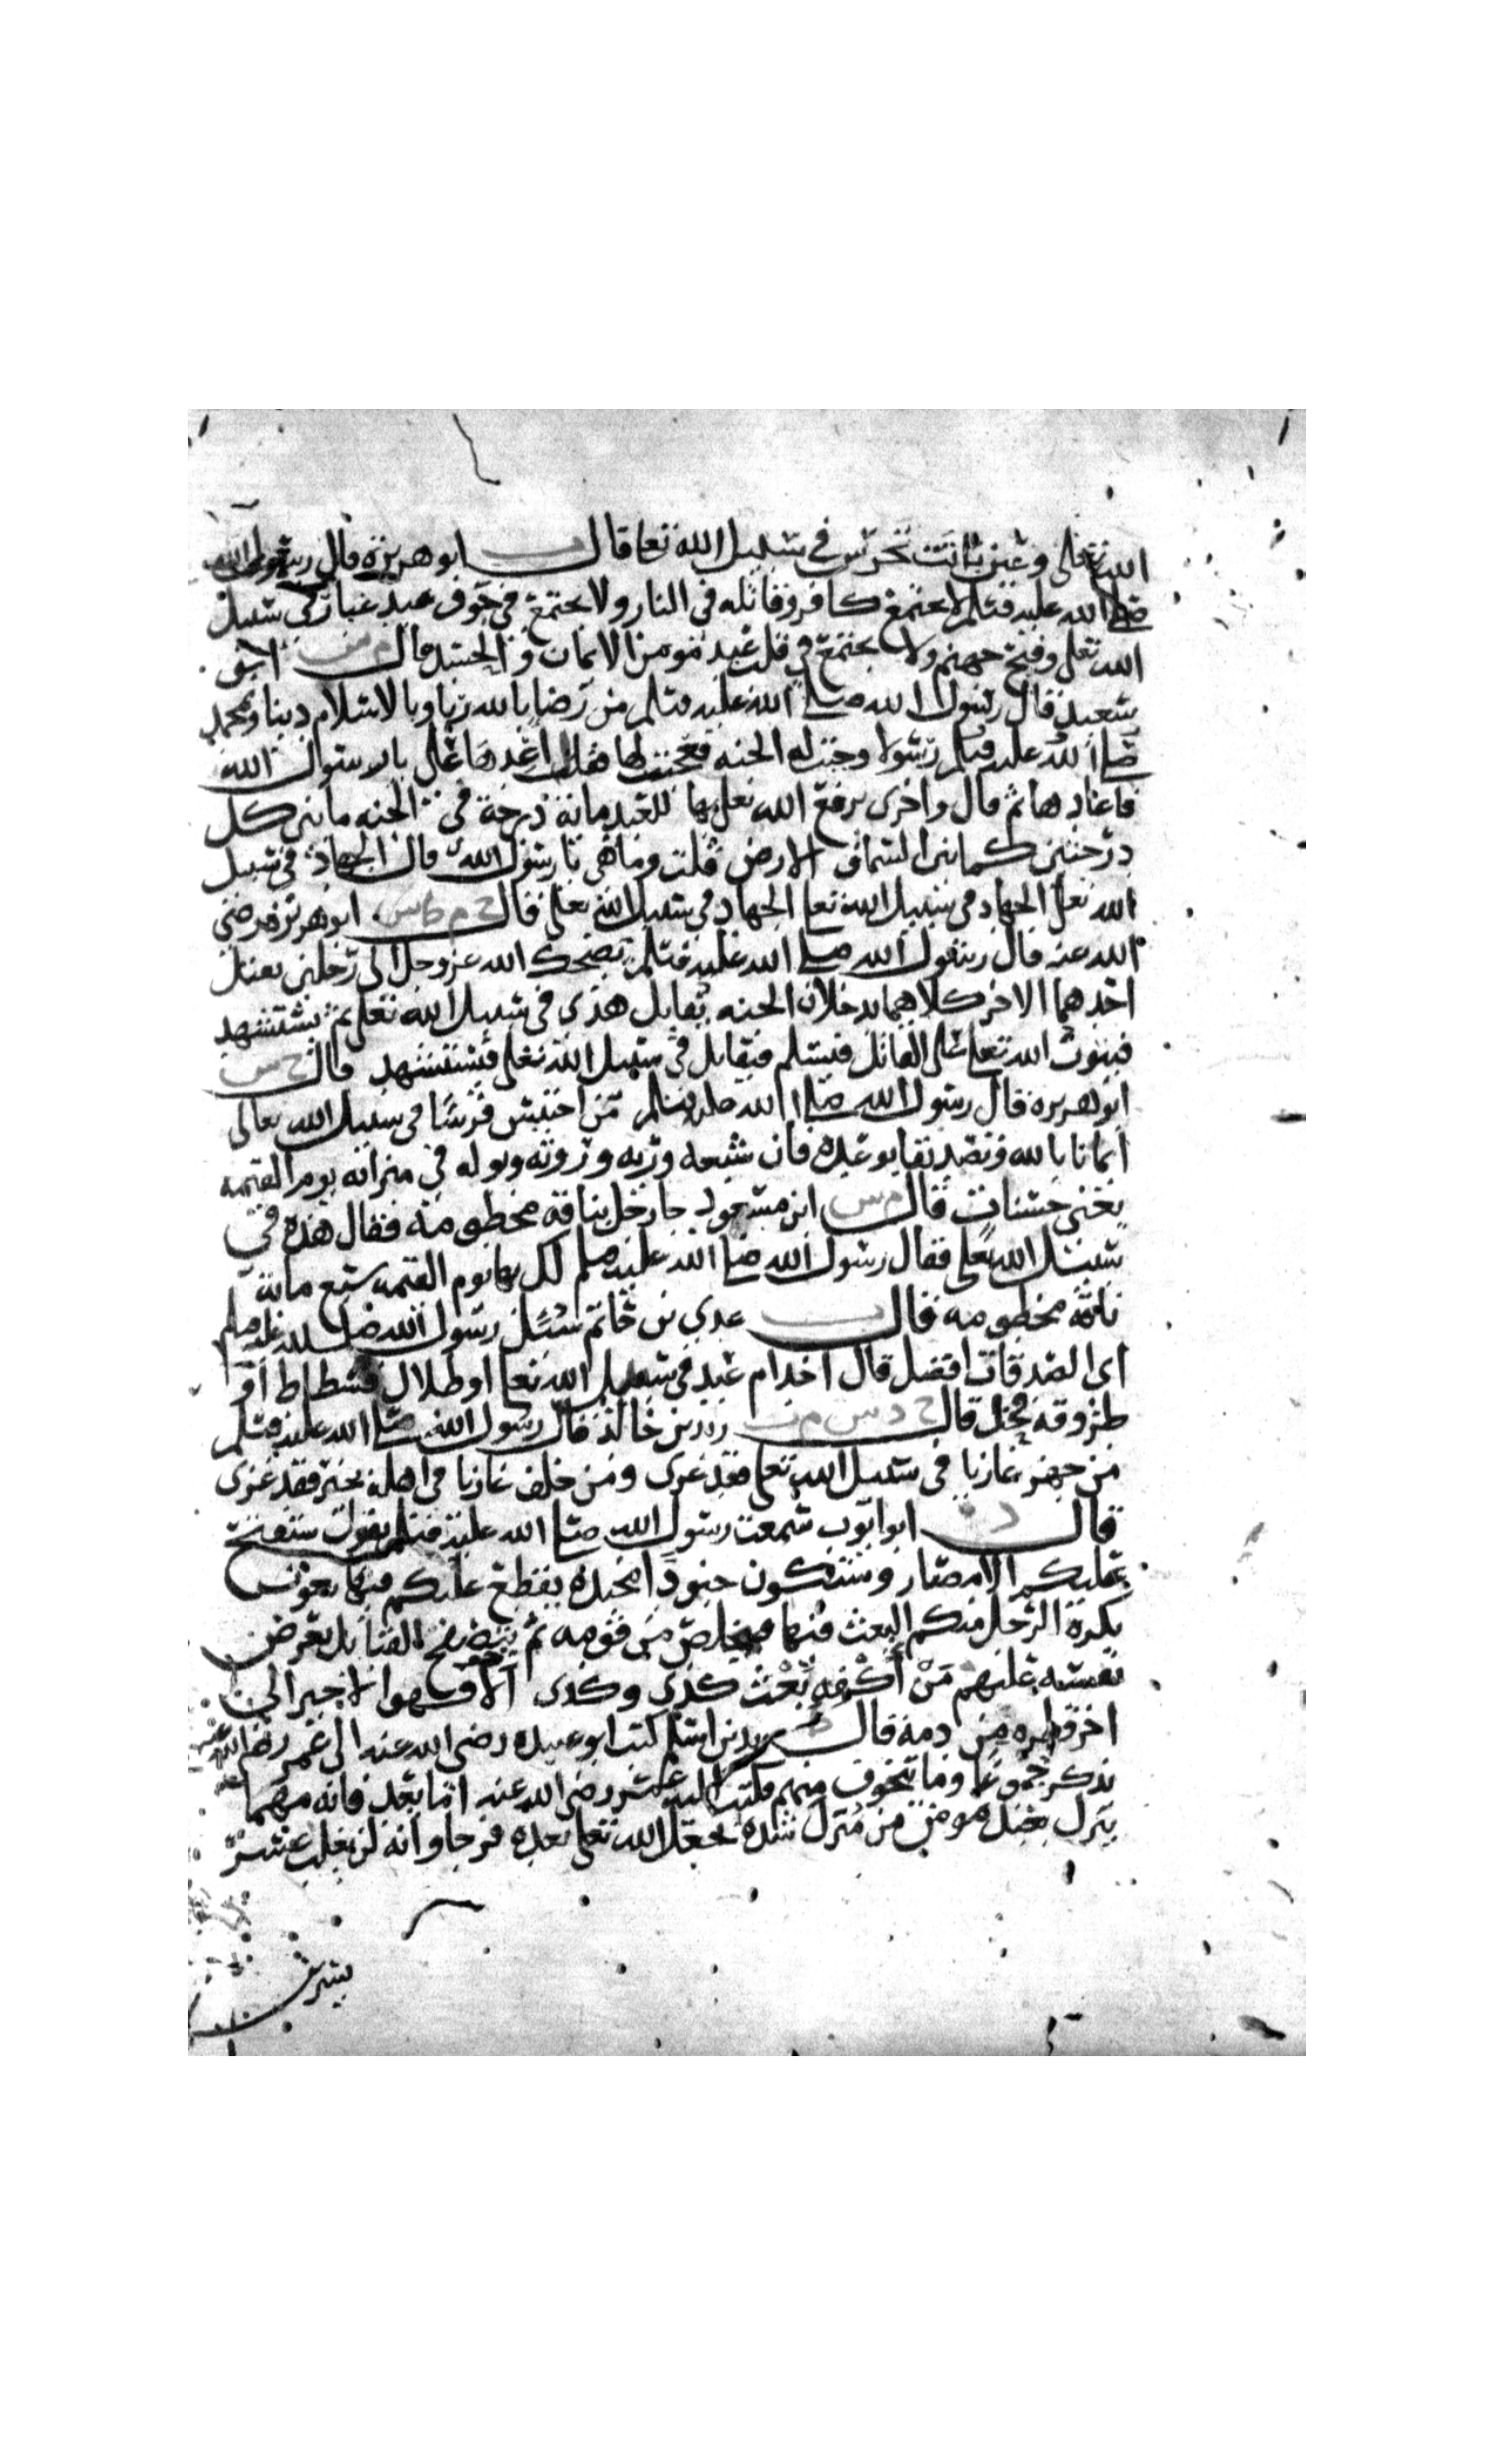 الله تعالى وعين باتت تحرس في سبيل الله تعا قال ابو هريرة قال رسول الله
صلى الله عليه وسلم لا يجتمع كافر وقاتله في النار ولا يجتمع في جوف عبد غبار في سبيل
الله تعلى وفيح جهنم ولا يجتمع في قلب عبد مومن الايمان والحسد قال م س ابو
سعيد قال رسول الله صلى الله عليه وسلم من رضا بالله ربا وبالاسلام دينا وبمحمد
صلى الله عليه وسلم رسولا وجبت له الجنه فعجبت لها فقلت اعدها علي يا رسول الله
فاعادها ثم قال واخرى يرفع الله تعلى بها للعبد مائة درجة في الجنه ما بين كل
درجتين كما بين السما والارض قلت وما هي يا رسول الله قال الجهاد في سبيل
الله تعلى الجهاد في سبيل الله تعا الجهاد في سبيل الله تعلى قال ح م ط س ابو هريره رضي
الله عنه قال رسول الله صلى الله عليه وسلم يضحك الله عز وجل الى رجلين يقتل
احدهما الاخر كلاهما يدخلان الجنه يقاتل هذى في سبيل الله تعلى ثم يستشهد
فيتوب الله تعا على القاتل فيسلم فيقاتل في سبيل الله تعلى فيستشهد قال ح س
ابو هريره قال رسول الله صلى الله عليه وسلم من احتبس فرسا في سبيل الله تعالى
ايمانا بالله وتصديقا بوعده فان شبعه وريه وروثه وبوله في ميزانه يوم القيمه
يعني حسنات قال م س ابن مسعود جا رجل بناقه مخطومه فقال هذه في
سبيل الله تعلى فقال رسول الله صلى الله عليه وسلم لك بها يوم القيمه سبع مائة
ناقة مخطومه قال عدي بن حاتم سئل رسول الله صلى الله عليه وسلم
اى الصدقات افضل قال اخدام عبد في سبيل الله تعا او ظلال فسطاط او
طروقة فحل قال ح د س م ت زيد بن خالد قال رسول الله صلى الله عليه وسلم
من جهز غازيا في سبيل الله تعلى فقد غزى ومن خلف غازيا في اهله بخير فقد غزى
قال د ابو ايوب سمعت رسول الله صلى الله عليه وسلم يقول ستفتح
عليكم الامصار وستكون جنودا مجنده يقطع عليكم فيها بعوث
يكره الرجل منكم البعث فيها فيتخلص من قومه ثم يتصفح القبائل يعرض
نفسه عليهم من اكفه بعث كذى وكذى الا وهو الاجير الى
اخر قطره من دمه قال زيد بن اسلم كتب ابو عبيده رضى الله عنه الى عمر رضى الله عنه
يذكر جموعا وما يتخوف منهم فكتب اليه عمر رضى الله عنه اما بعد فانه مهما
ينزل بعبد مومن من منزل شده يجعل الله تعلى بعده فرجا وانه لن يغلب عسر
يسرين